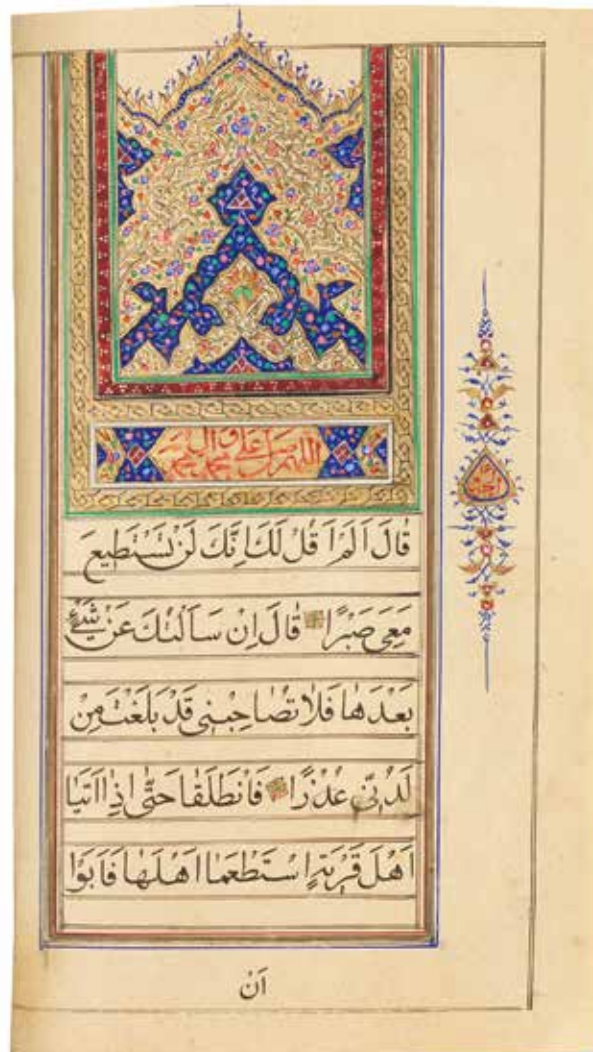 اللهم صل على محمد وال محمد
قٰالَ اَلَمْ اَقُلْ لَكَ اِنَّكَ لَنْ تَسْتَطیعَ
مَعِیَ صَبْرًا قٰالَ اِنْ سَاَلْتُكَ عَنْ شَیْءٍ
بَعْدَهٰا فَلٰا تُصٰاحِبْنی قَدْ بَلَغْتَ مِنْ
لَدُنّی عُذْرًا فَانْطَلَقٰا حَتّٰی اِذٰا اَتَیٰا
اَهْلَ قَرْیَةٍ اسْتَطْعَمٰا اَهْلَهٰا فَاَبَوْا
اَنْ